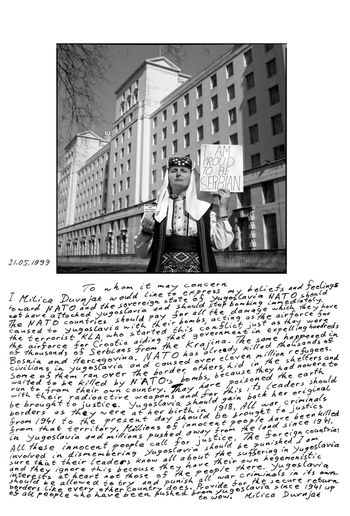 I AM
PROUD
TO BE
SERBIAN
21.05.1999
To whom it may concern
I Milica Duvnjak would like to express my beliefs and feelings
toward NATO and the sovereign state of Yugoslavia NATO should
not have attacked Yugoslavia and should stop bombing immediately.
The NATO countries should pay for all the damage which they have
caused to Yugoslavia with their bombs, acting as the airforce for
the terrorist KLA who started this conflict just as they were
the airforce for Croatia aiding that government in expelling hundreds
of thousands of Serbians from the Krajina. The same happened in
Bosnia and Hercegovina. NATO has already killed thousands of
civilians in Yugoslavia and caused over eleven million refugees.
Some of them ran over the border others hid in the shelters and
waited to be killed by NATO's bombs, because they had nowhere to
run to from their own country. They have poisoned the earth
with their radioactive weapons and for this its leaders should
be brought to justice. Yugoslavia should gain back her original
borders as they were at her birth in 1918. All war criminals
from 1941 to the present day should be brought to justice
from that territory. Millions of innocent people have been killed
in Yugoslavia and millions pushed away from the land since 1941.
All these innocent people call for justice. The foreign countries
involved in dismembering Yugoslavia should be punished I am
sure that their leaders know all about the suffering in Yugoslavia
and they ignore this because they have their own hegemonistic
interests at heart not those of the people there. Yugoslavia
should be allowed to try and punish all war criminals in its own
borders like every other country does. Provide for the secure return
of all people who have been pushed from Yugoslavia since 1941 up
to now. Milica Duvnjak